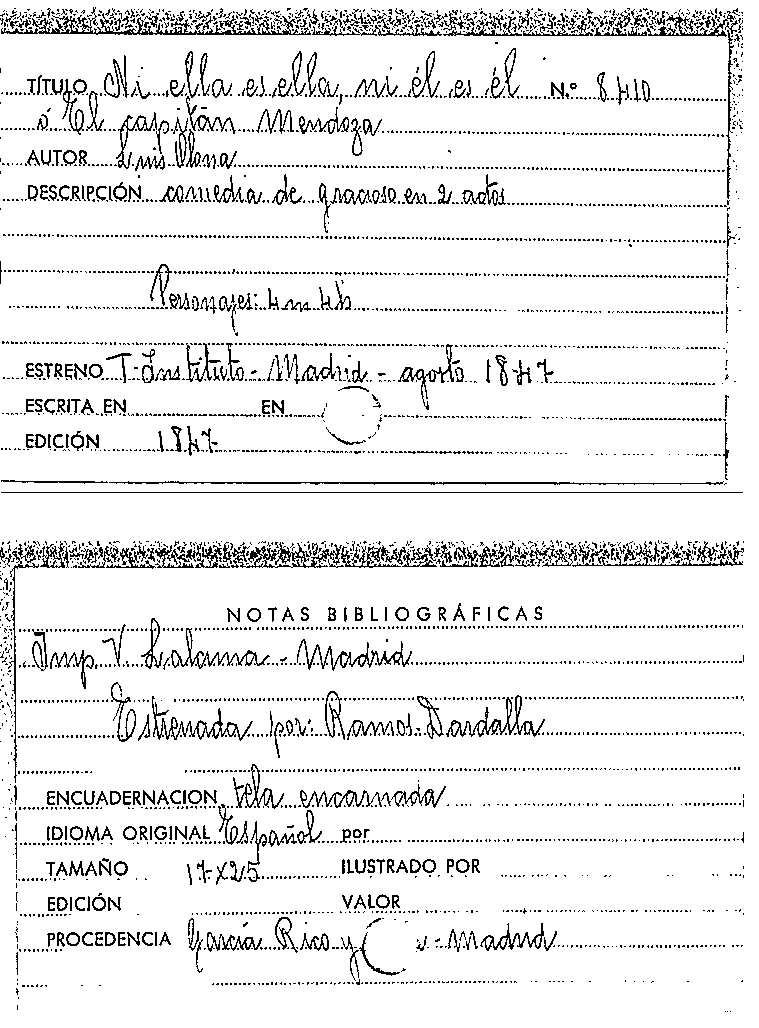 TÍTULO Ni ella es ella, ni él es él N.º 8410
ó El capitán Mendoza
AUTOR Luis Olona
DESCRIPCIÓN comedia de gracioso en 2 actos
Personajes: 4 m 4 h
ESTRENO T. Instituto - Madrid - agosto 1847
ESCRITA EN EN
EDICIÓN 1847
NOTAS BIBLIOGRÁFICAS
Imp. V. Lalama - Madrid
Estrenada por: Ramos - Dardalla
ENCUADERNACION tela encarnada
IDIOMA ORIGINAL Español por
TAMAÑO 17 x 25 ILUSTRADO POR
EDICIÓN VALOR
PROCEDENCIA García Rico y - Madrid